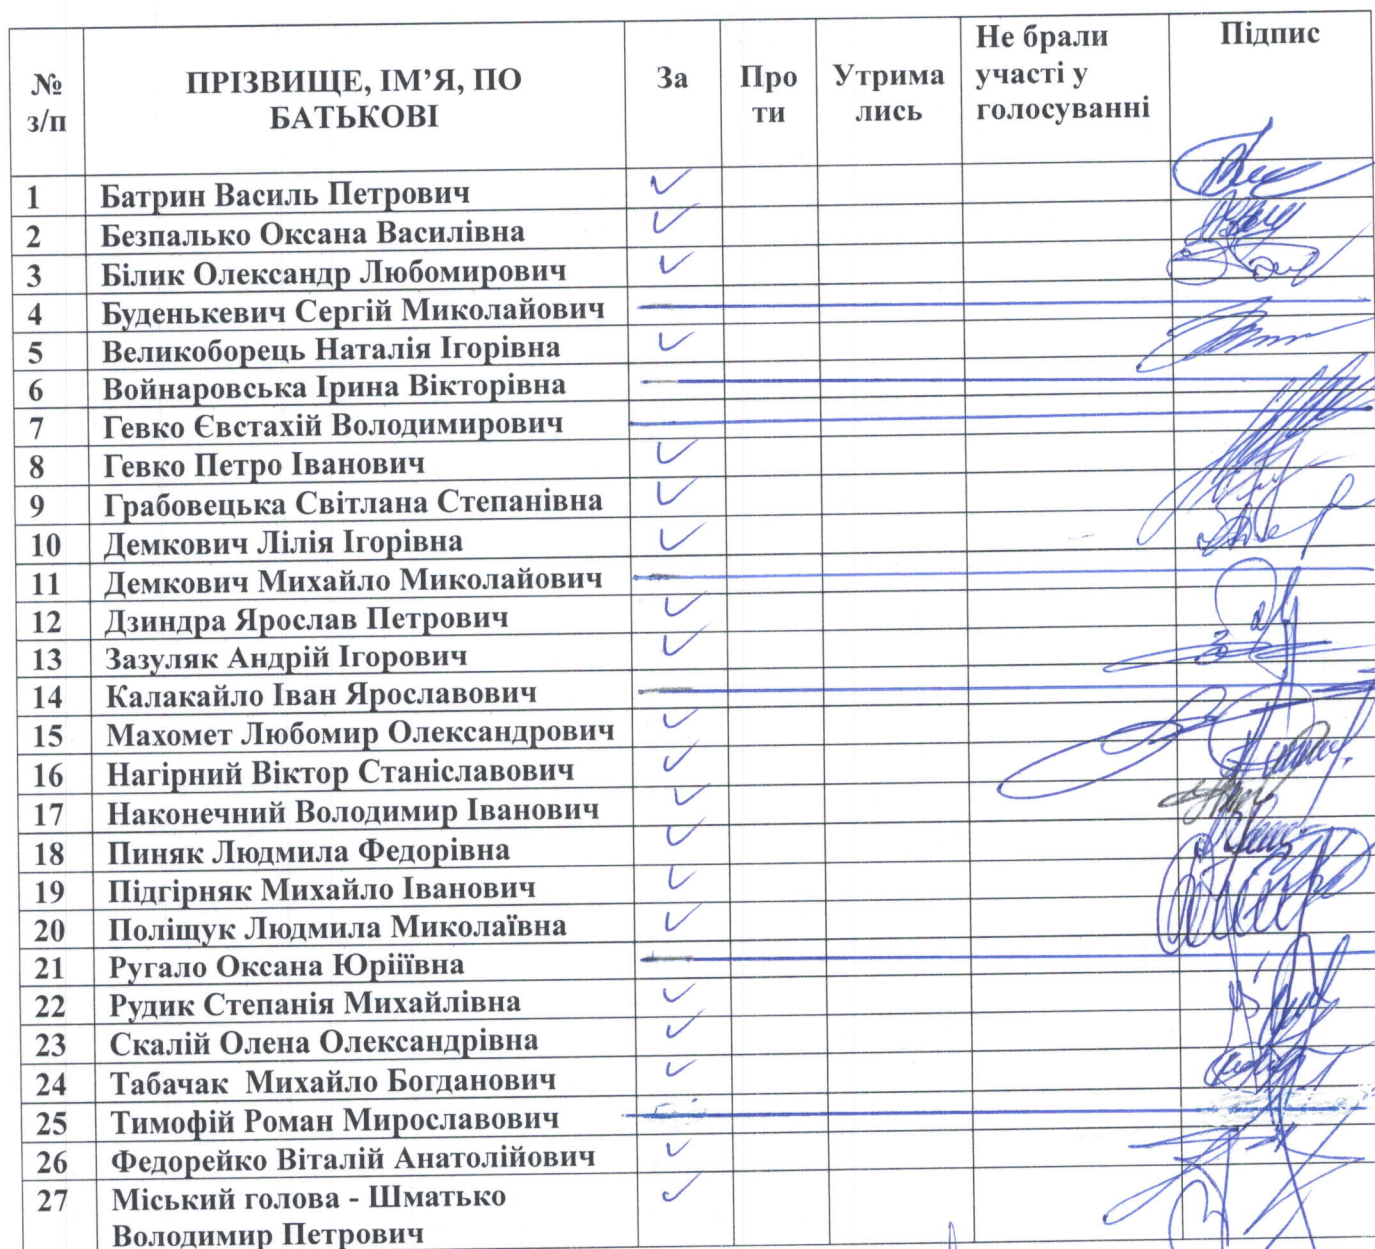 № з/п ПРІЗВИЩЕ, ІМ’Я, ПО БАТЬКОВІ За Про ти Утрима лись Не брали участі у голосуванні Підпис
1 Батрин Василь Петрович ✓
2 Безпалько Оксана Василівна ✓
3 Білик Олександр Любомирович ✓
4 Буденькевич Сергій Миколайович
5 Великоборець Наталія Ігорівна ✓
6 Войнаровська Ірина Вікторівна
7 Гевко Євстахій Володимирович
8 Гевко Петро Іванович ✓
9 Грабовецька Світлана Степанівна ✓
10 Демкович Лілія Ігорівна ✓
11 Демкович Михайло Миколайович
12 Дзиндра Ярослав Петрович ✓
13 Зазуляк Андрій Ігорович ✓
14 Калакайло Іван Ярославович
15 Махомет Любомир Олександрович ✓
16 Нагірний Віктор Станіславович ✓
17 Наконечний Володимир Іванович ✓
18 Пиняк Людмила Федорівна ✓
19 Підгірняк Михайло Іванович ✓
20 Поліщук Людмила Миколаївна ✓
21 Ругало Оксана Юріїївна
22 Рудик Степанія Михайлівна ✓
23 Скалій Олена Олександрівна ✓
24 Табачак Михайло Богданович ✓
25 Тимофій Роман Мирославович
26 Федорейко Віталій Анатолійович ✓
27 Міський голова - Шматько ✓
Володимир Петрович